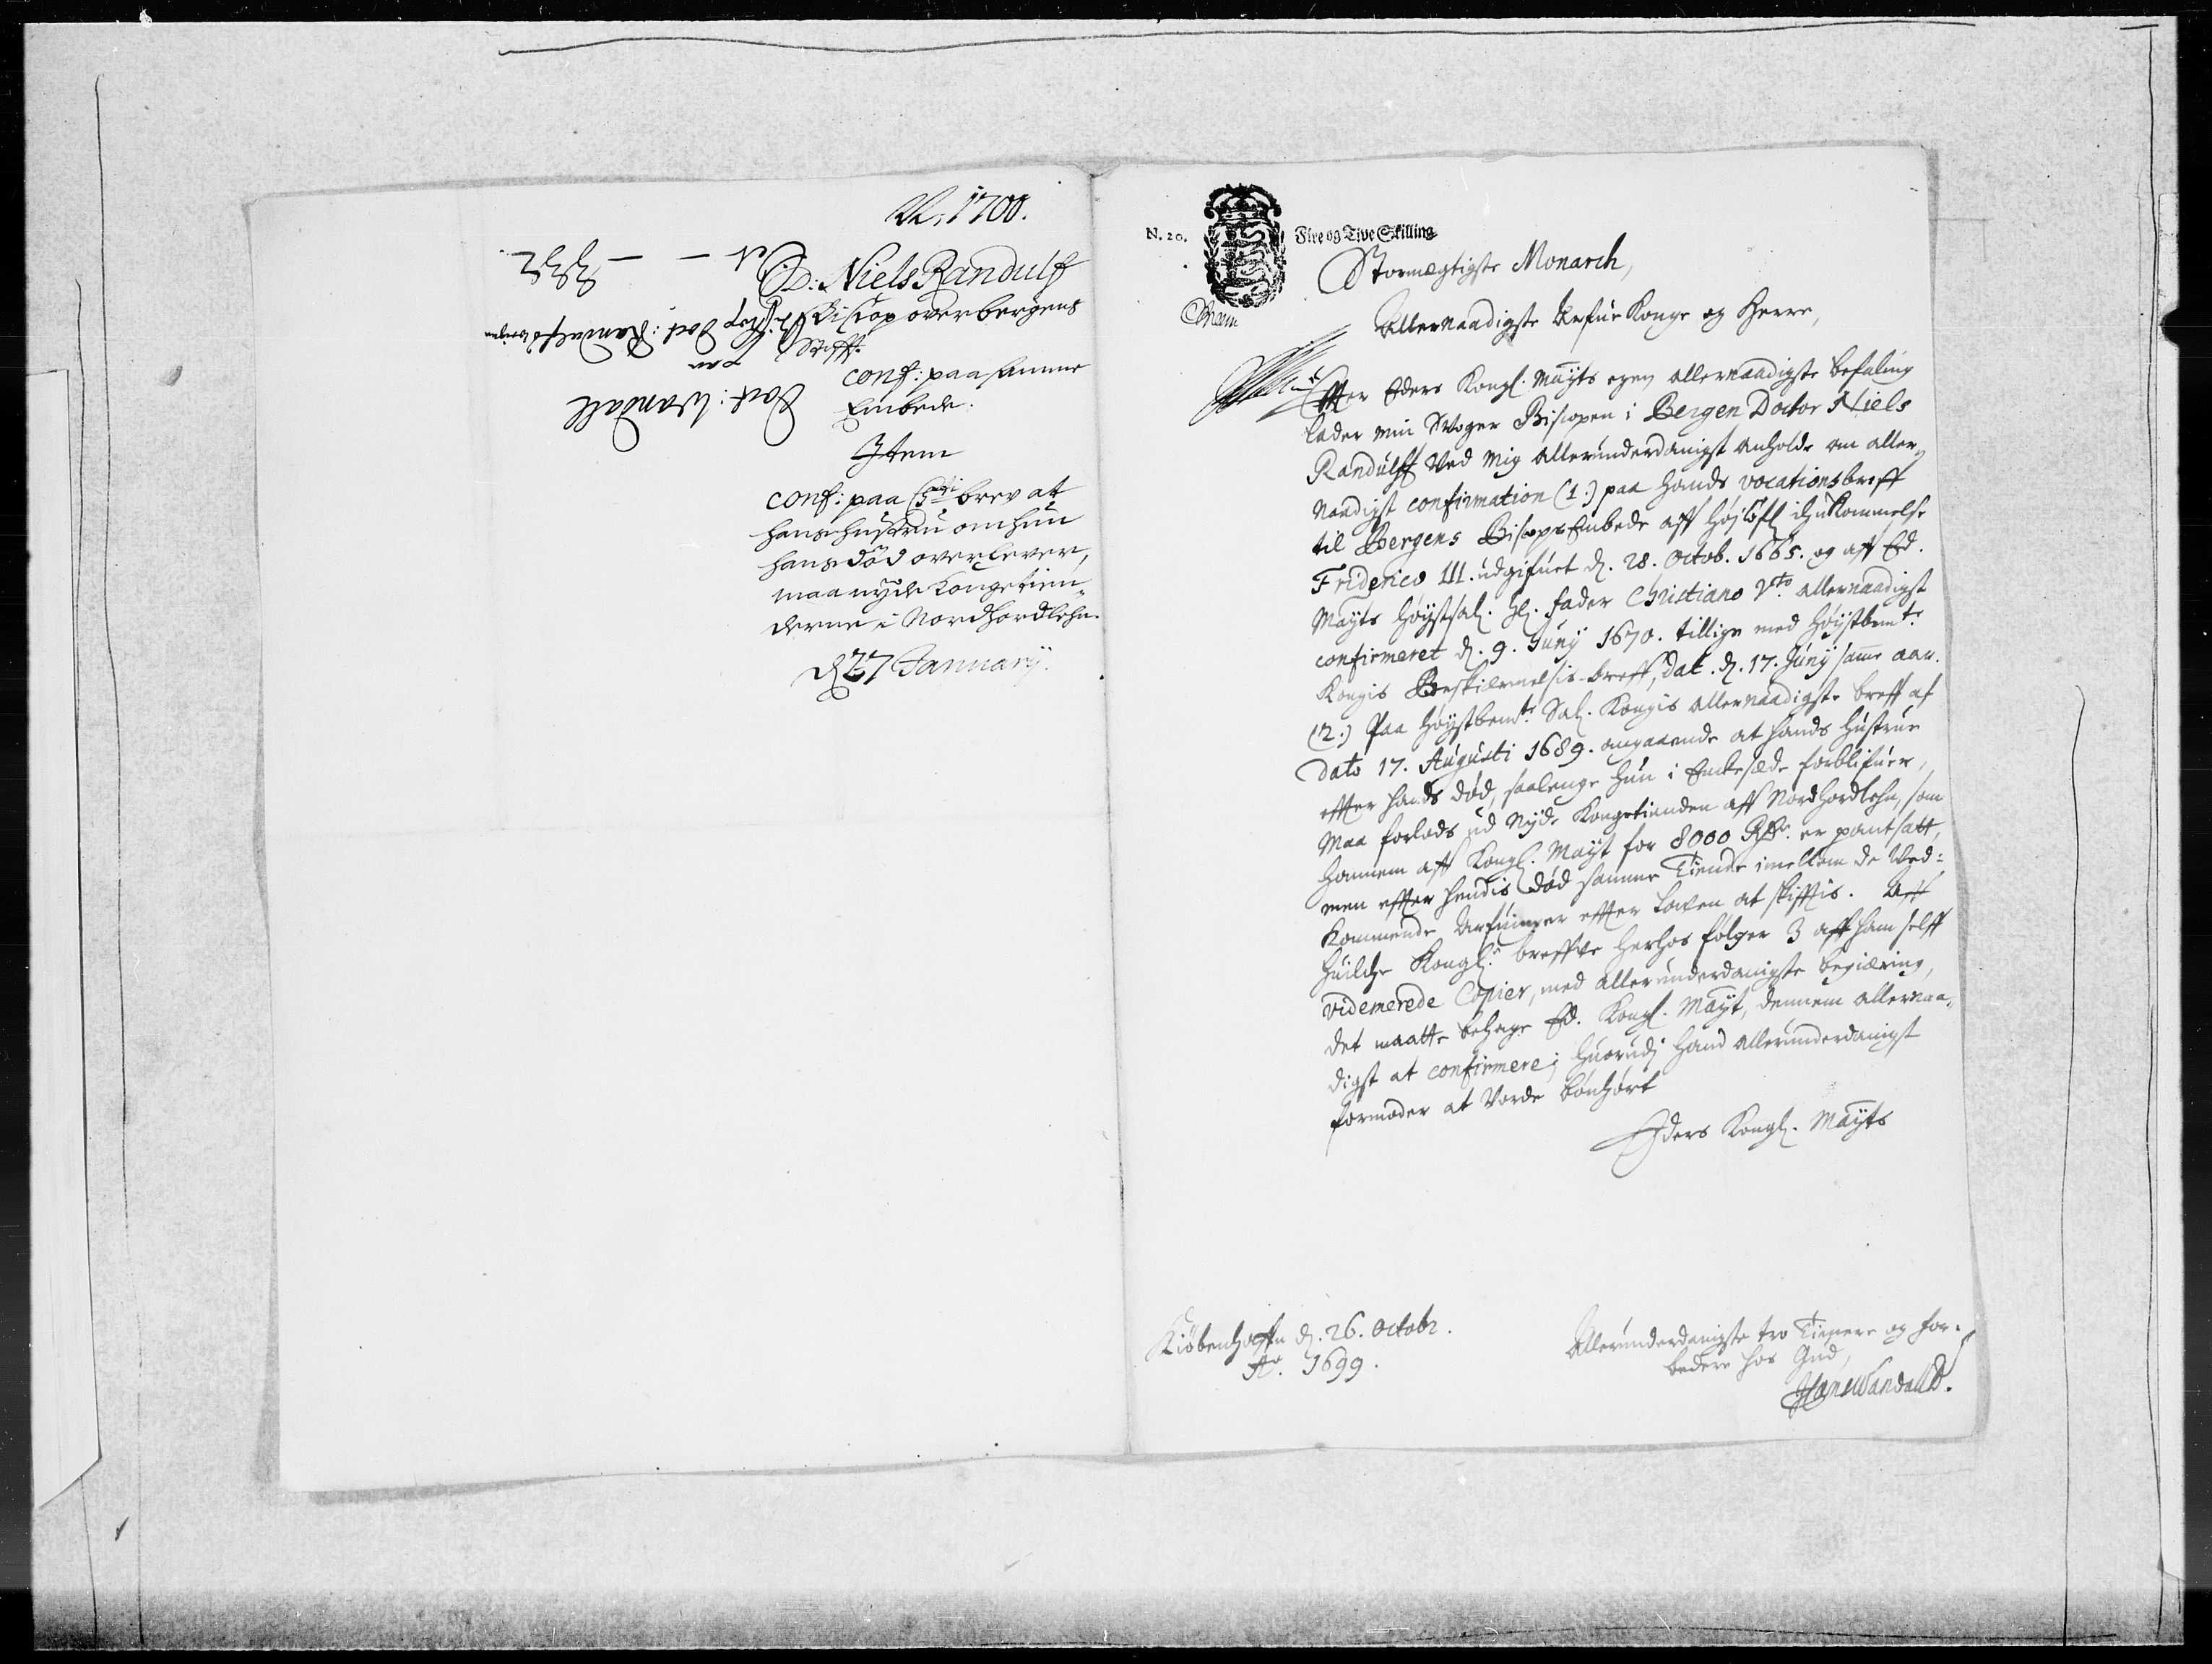 1700.
D: Niels Randulf
Biscop over bergens
Stifft.
conf: paa samme
Embede.
Item
conf: paa brev at
hans hustru om hun
hans död overlever,
maa nyde Kongetien„
derne i Nordhordlehn.
d 27 January.
Doct: Wandall
Doct: Randulf
N. 20.
Fire og Tive Skilling
Stormægtigste Monarch,
Allernaadigste Arfue Konge og Herre,
Effter Eders Kongl. Mayts egen allernaadigste befaling
lader min Swoger Biscopen i Bergen Doctor Niels
Randulff ved mig allerunderdanigst anholde om aller„
naadigst confirmation (1.) paa hands vocationsbreff
til Bergens Biscops Embede aff Højlofl. ihukommelse
Friderico III. udgifuet d. 28. Octob. 1665. og aff Ed.
Mayts Höystsal. Hr. Fader Christiano Vto allernaadigst
confirmeret d. 9. Juny 1670. tillige med Höystbemte
Kongis Beskiermelsis-breff, dat. d. 17. Juny same aar.
(2.) Paa Höystbemte Sal. Kongis allernaadigste breff af
Dato 17. Augusti 1689. angaaende at hands Hustrue
effter hands död, saalenge hun i Enkesæde forblifuer,
maa forlods ud nyde Kongetienden aff Nordhordlehn, som
hannem aff Kongl. Mayt for 8000 Rdr. er pantsatt,
men effter hendis död samme Tiende imellem de ved=
kommende Arfuinger effter lowen at skifftis. Aff
huilche Kongl. breffve herhos fölger 3 aff ham selff
videmerede Copier, med allerunderdanigste begiæring,
det maatte behage Ed. Kongl. Mayt, dennem allernaa„
digst at confirmere; huorudj hand allerunderdanigst
formoder at vorde bönhört
Eders Kongl. Mayts
Kiöbenhaffn d. 26. Octobr.
Ao. 1699.
Allerunderdanigste tro Tienere og for„
bedere hos Gud,
Hans Wandall D.